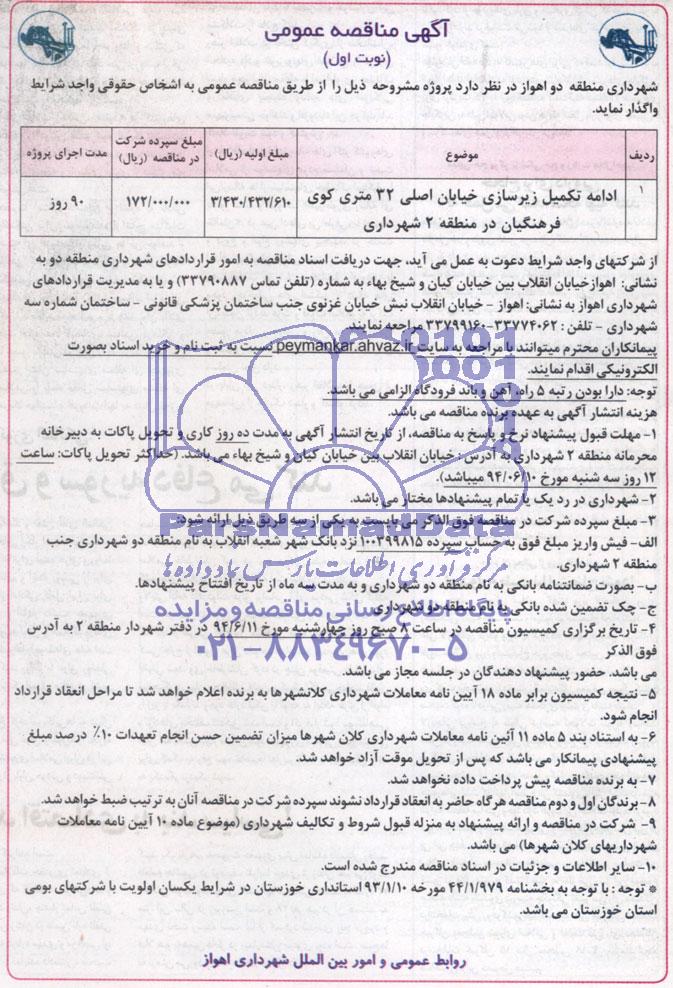 آگهی مناقصه عمومی
(نوبت اول)
شهرداری منطقه دو اهواز در نظر دارد پروژه مشروحه ذیل را از طریق مناقصه عمومی به اشخاص حقوقی واجد شرایط
واگذار نماید.
ردیف
موضوع
مبلغ اولیه (ریال)
مبلغ سپرده شرکت
در مناقصه (ریال)
مدت اجرای پروژه
۱
ادامه تکمیل زیرسازی خیابان اصلی ۳۲ متری کوی
فرهنگیان در منطقه ۲ شهرداری
۳/۴۳۰/۴۳۲/۶۱۰
۱۷۲/۰۰۰/۰۰۰
۹۰ روز
از شرکتهای واجد شرایط دعوت به عمل می آید، جهت دریافت اسناد مناقصه به امور قراردادهای شهرداری منطقه دو به
نشانی: اهوازخیابان انقلاب بین خیابان کیان و شیخ بهاء به شماره (تلفن تماس ۳۳۷۹۰۸۸۷) و یا به مدیریت قراردادهای
شهرداری اهواز به نشانی: اهواز - خیابان انقلاب نبش خیابان غزنوی جنب ساختمان پزشکی قانونی - ساختمان شماره سه
شهرداری - تلفن : ۳۳۷۷۴۰۶۲-۳۳۷۹۹۱۶۰ مراجعه نمایند.
پیمانکاران محترم میتوانند با مراجعه به سایت peymankar.ahvaz.ir نسبت به ثبت نام و خرید اسناد بصورت
الکترونیکی اقدام نمایند.
توجه: دارا بودن رتبه ۵ راه، آهن و باند فرودگاه الزامی می باشد.
هزینه انتشار آگهی به عهده برنده مناقصه می باشد.
۱- مهلت قبول پیشنهاد نرخ و پاسخ به مناقصه، از تاریخ انتشار آگهی به مدت ده روز کاری و تحویل پاکات به دبیرخانه
محرمانه منطقه ۲ شهرداری به آدرس : خیابان انقلاب بین خیابان کیان و شیخ بهاء می باشد. (حداکثر تحویل پاکات: ساعت
۱۲ روز سه شنبه مورخ ۹۴/۰۶/۱۰ میباشد).
۲- شهرداری در رد یک یا تمام پیشنهادها مختار می باشد.
۳- مبلغ سپرده شرکت در مناقصه فوق الذکر می بایست به یکی از سه طریق ذیل ارائه شود:
الف - فیش واریز مبلغ فوق به حساب سپرده ۱۰۰۳۹۹۸۱۵ نزد بانک شهر شعبه انقلاب به نام منطقه دو شهرداری جنب
منطقه ۲ شهرداری.
ب- بصورت ضمانتنامه بانکی به نام منطقه دو شهرداری و به مدت سه ماه از تاریخ افتتاح پیشنهادها.
ج- چک تضمین شده بانکی به نام منطقه دو شهرداری
۴- تاریخ برگزاری کمیسیون مناقصه در ساعت ۸ صبح روز چهارشنبه مورخ ۹۴/۶/۱۱ در دفتر شهردار منطقه ۲ به آدرس
فوق الذکر
می باشد. حضور پیشنهاد دهندگان در جلسه مجاز می باشد.
۵- نتیجه کمیسیون برابر ماده ۱۸ آیین نامه معاملات شهرداری کلانشهرها به برنده اعلام خواهد شد تا مراحل انعقاد قرارداد
انجام شود.
۶- به استناد بند ۵ ماده ۱۱ آئین نامه معاملات شهرداری کلان شهرها میزان تضمین حسن انجام تعهدات ۱۰٪ درصد مبلغ
پیشنهادی پیمانکار می باشد که پس از تحویل موقت آزاد خواهد شد.
۷- به برنده مناقصه پیش پرداخت داده نخواهد شد.
۸- برندگان اول و دوم مناقصه هرگاه حاضر به انعقاد قرارداد نشوند سپرده شرکت در مناقصه آنان به ترتیب ضبط خواهد شد.
۹- شرکت در مناقصه و ارائه پیشنهاد به منزله قبول شروط و تکالیف شهرداری (موضوع ماده ۱۰ آیین نامه معاملات
شهرداریهای کلان شهرها) می باشد.
۱۰- سایر اطلاعات و جزئیات در اسناد مناقصه مندرج شده است.
* توجه : با توجه به بخشنامه ۴۴/۱/۹۷۹ مورخه ۹۳/۱/۱۰ استانداری خوزستان در شرایط یکسان اولویت با شرکتهای بومی
استان خوزستان می باشد.
روابط عمومی و امور بین الملل شهرداری اهواز
ParsNamadData
مرکز فرآوری اطلاعات پارس نماد داده ها
پایگاه اطلاع رسانی مناقصه و مزایده
۰۲۱-۸۸۳۴۹۶۷۰-۵